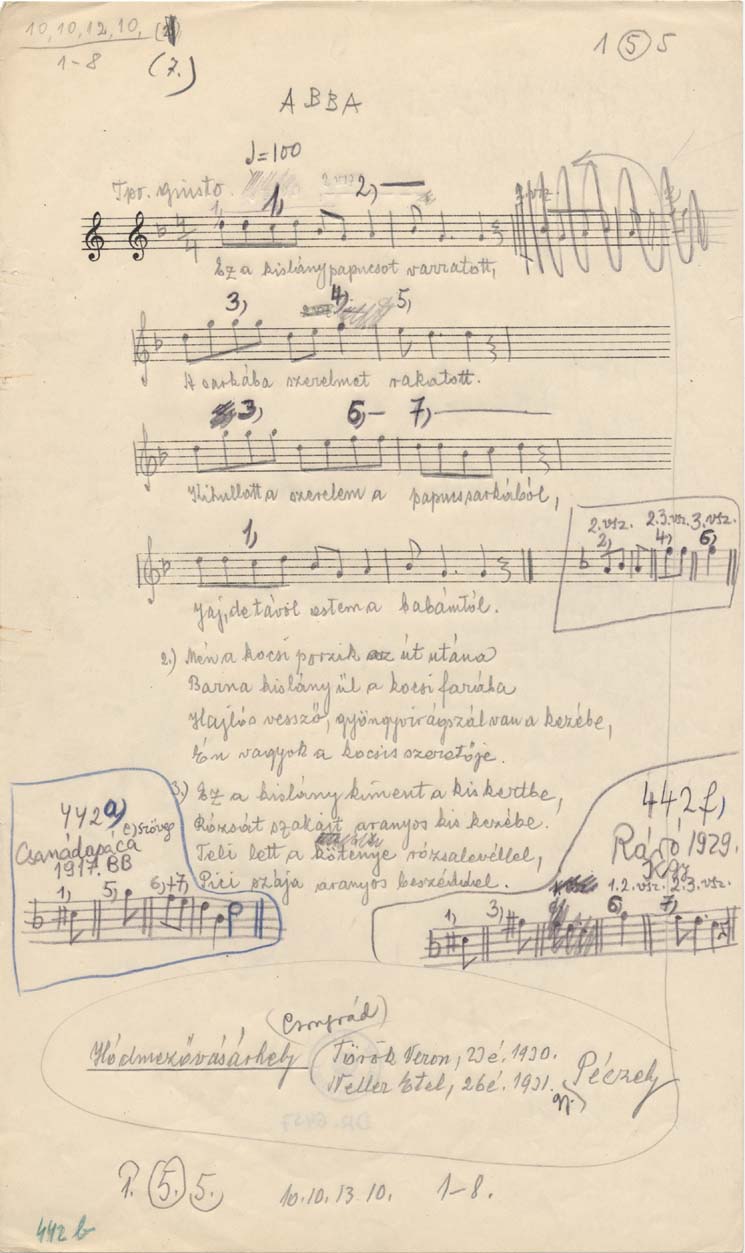 10, 10, 12, 10,
1-8 (7.)
1 5 5
ABBA
♩=100
Tpo. giusto.
1,) 2,)
Ez a kislány papucsot varratott,
3,) 4,) 5,)
A sarkába szerelmet rakatott.
3,) 6,) 7,)
Kihullott a szerelem a papucssarkából,
2.vsz. 2.3.vsz. 3.vsz.
2,) 4,) 6,)
1,)
Jaj, de távol estem a babámtól.
2.) Mén a kocsi porzik az út utána
Barna kislány ül a kocsi fariába
Hajlós vessző, gyöngyvirágszál van a kezébe,
Én vagyok a kocsis szeretője.
3.) Ez a kislány kiment a kis kertbe,
Rózsát szakajt aranyos kis kezébe.
Teli lett a köténye rózsalevéllel,
Pici szája aranyos beszéddel.
442a) c) szöveg
Csanádapáca
1917. BB
1,) 5,) 6,)+7,)
442f,)
1929.
1.2.vsz. 2.3.vsz.
1,) 3,) 6,) 7,)
(Csongrád)
Hódmezővásárhely (Török Veron, 23é. 1930.
Weller Etel, 26é. 1931. Péczely
gy.)
P. 5. 5. 10. 10. 13. 10. 1-8.
442 b